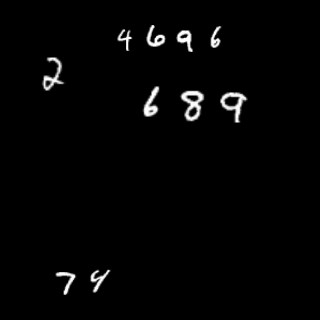 4696
2
689
74